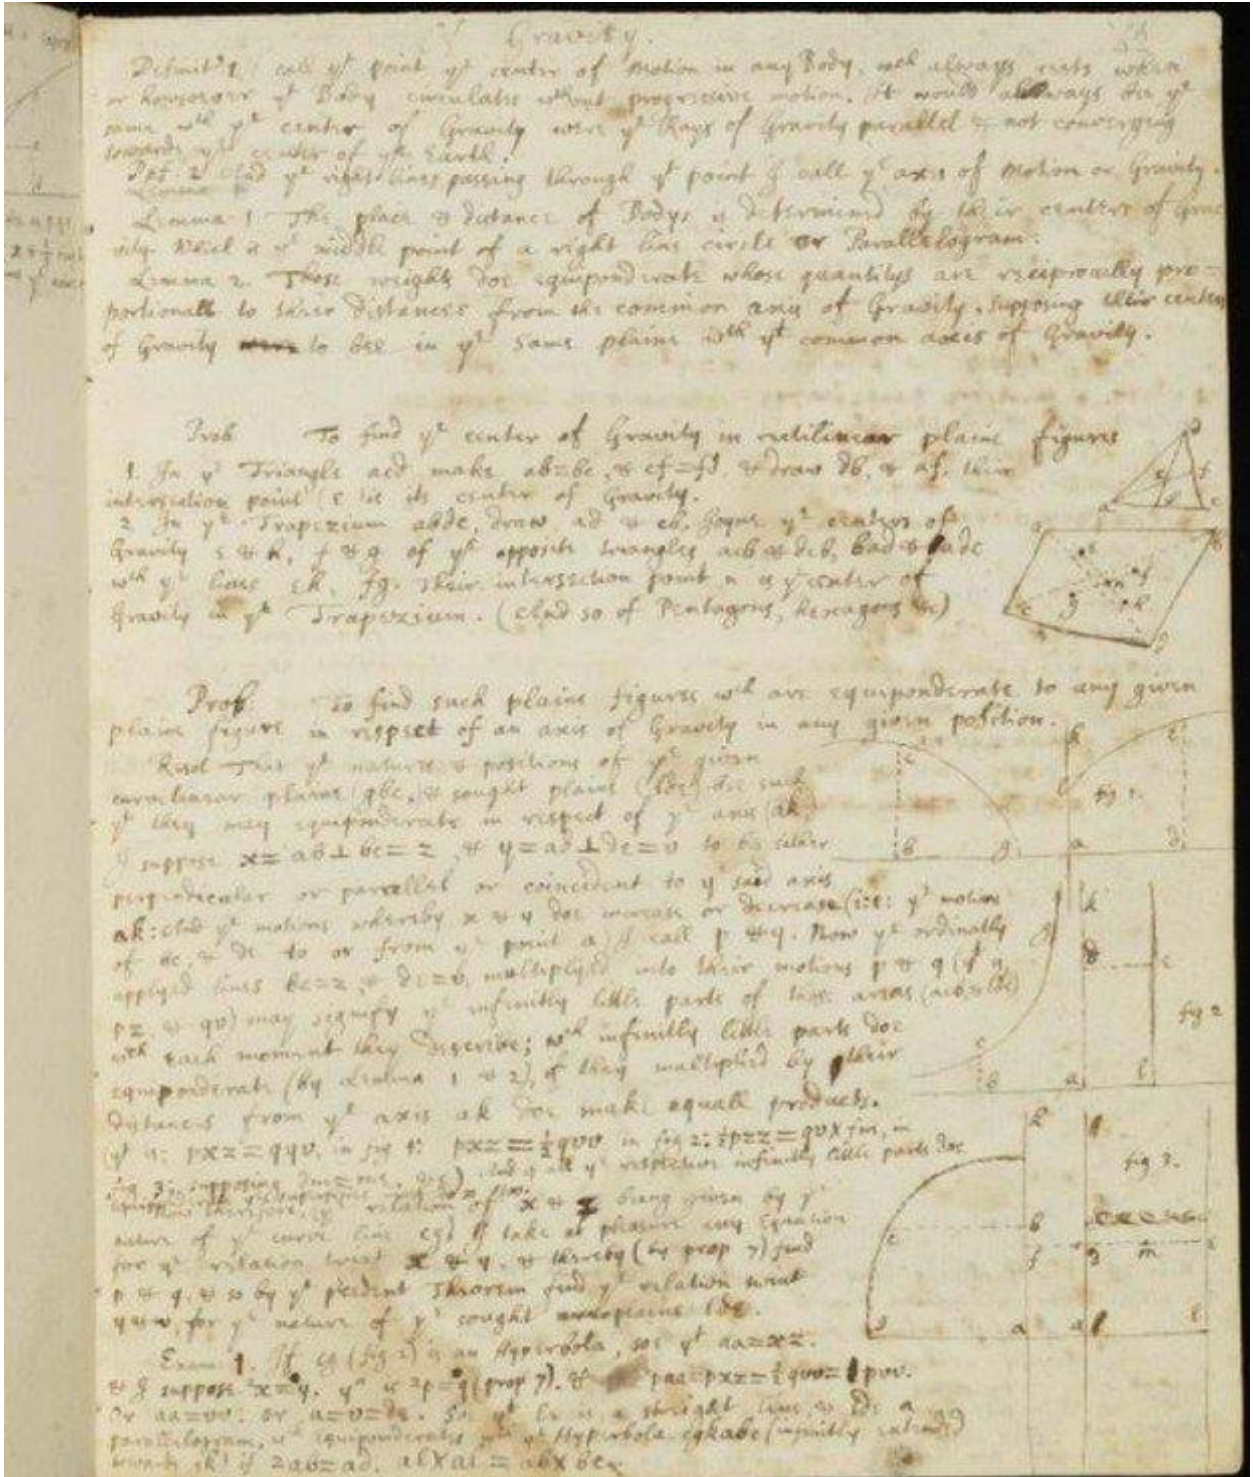 Gravity.
Definit: 1. I call yt point ye center of Motion in any Body, wch always rests when
or howsoever yt Body circulates wthout progressive motion. It would always bee ye
same wth ye center of Gravity were ye Rays of Gravity parallel & not converging
towards ye center of ye Earth.
Def: 2 And ye right lines passing through yt point I call ye axes of Motion or Gravity.
Lemma 1 The place & distance of Bodys is determined by their centers of Gra
vity. Which is ye middle point of a right line circle or Parallelogram.
Lemma 2. Those weights doe equiponderate whose quantitys are reciprocally pro=
portionall to their distances from the common axis of Gravity, supposing their centers
of Gravity to bee in ye same plaine wth yt common axes of Gravity.
Prob To find ye center of Gravity in rectilinear plaine figures
1. In ye Triangle acd make ab=bc, & cf=fd, & draw db, & af, their
intersection point e is its center of Gravity.
2 In ye Trapezium abdc, draw ad & cb. Joyne ye centers of
Gravity e & h, f & g of ye opposite triangles acb & dcb, bad & adc
wth ye lines eh, fg. Their intersection point n is ye center of
Gravity in ye Trapezium. (And so of Pentagons, hexagons &c)
Prob. To find such plaine figures wch are equiponderate to any given
plaine figure in respect of an axis of Gravity in any given position.
Resol That ye natures & positions of ye given
curvilinear plaine (gbc,) & sought plaine (lde) bee such
yt they may equiponderate in respect of ye axis (ak)
I suppose x=ab⊥bc=z, & y=ad⊥de=v to be either
perpendicular or parallel or coincident to ye said axis
ak: And ye motions whereby x & y doe increase or decrease (i:e: ye motions
of bc, & de to or from ye point a) I call p & q. Now ye ordinatly
applyed lines bc=z, & de=v, multiplyed into their motions p & q (yt is
pz, & qv) may signify ye infinitly little parts of those areas
wch each moment they describe; wch infinitly little parts doe
equiponderate (by Lemma 1 & 2), if they multiplied by their
distances from ye axis ak doe make equall products.
(yt is: pxz=qyv, in fig 1: pxz=½qvv in fig 2: ½pzz=qv×fm, in
fig 3: supposing And if all ye respective infinitly little parts doe
Now therefore, ye relation of x & z being given by ye
nature of ye curve line cg, I take at pleasure any Equation
for ye relation twixt x & y, & thereby (by prop 7) find
p & q, & so by ye precedent Theorem find ye relation twixt
y & v, for ye nature of ye sought plaine lde.
Exam: 1. If cg (fig 2) is an Hyperbola, soe yt aa=xz.
& I suppose 2x=y. yn is 2p=q (prop 7). & paa=pxz=½qvv=pvv.
Or aa=vv: or, a=v=de. Soe yt le is a streight line, & lde a
parallelogram, wch equiponderates wth ye Hyperbola cgkabc (infinitly extended
towards gk) if 2ab=ad. al×al=ab×bc.
a b c d e f
a b c d e f g h n
fig 1.
a b c d e g k l
fig 2
a b c d e g k l
fig 3.
a b c d e f g k l m